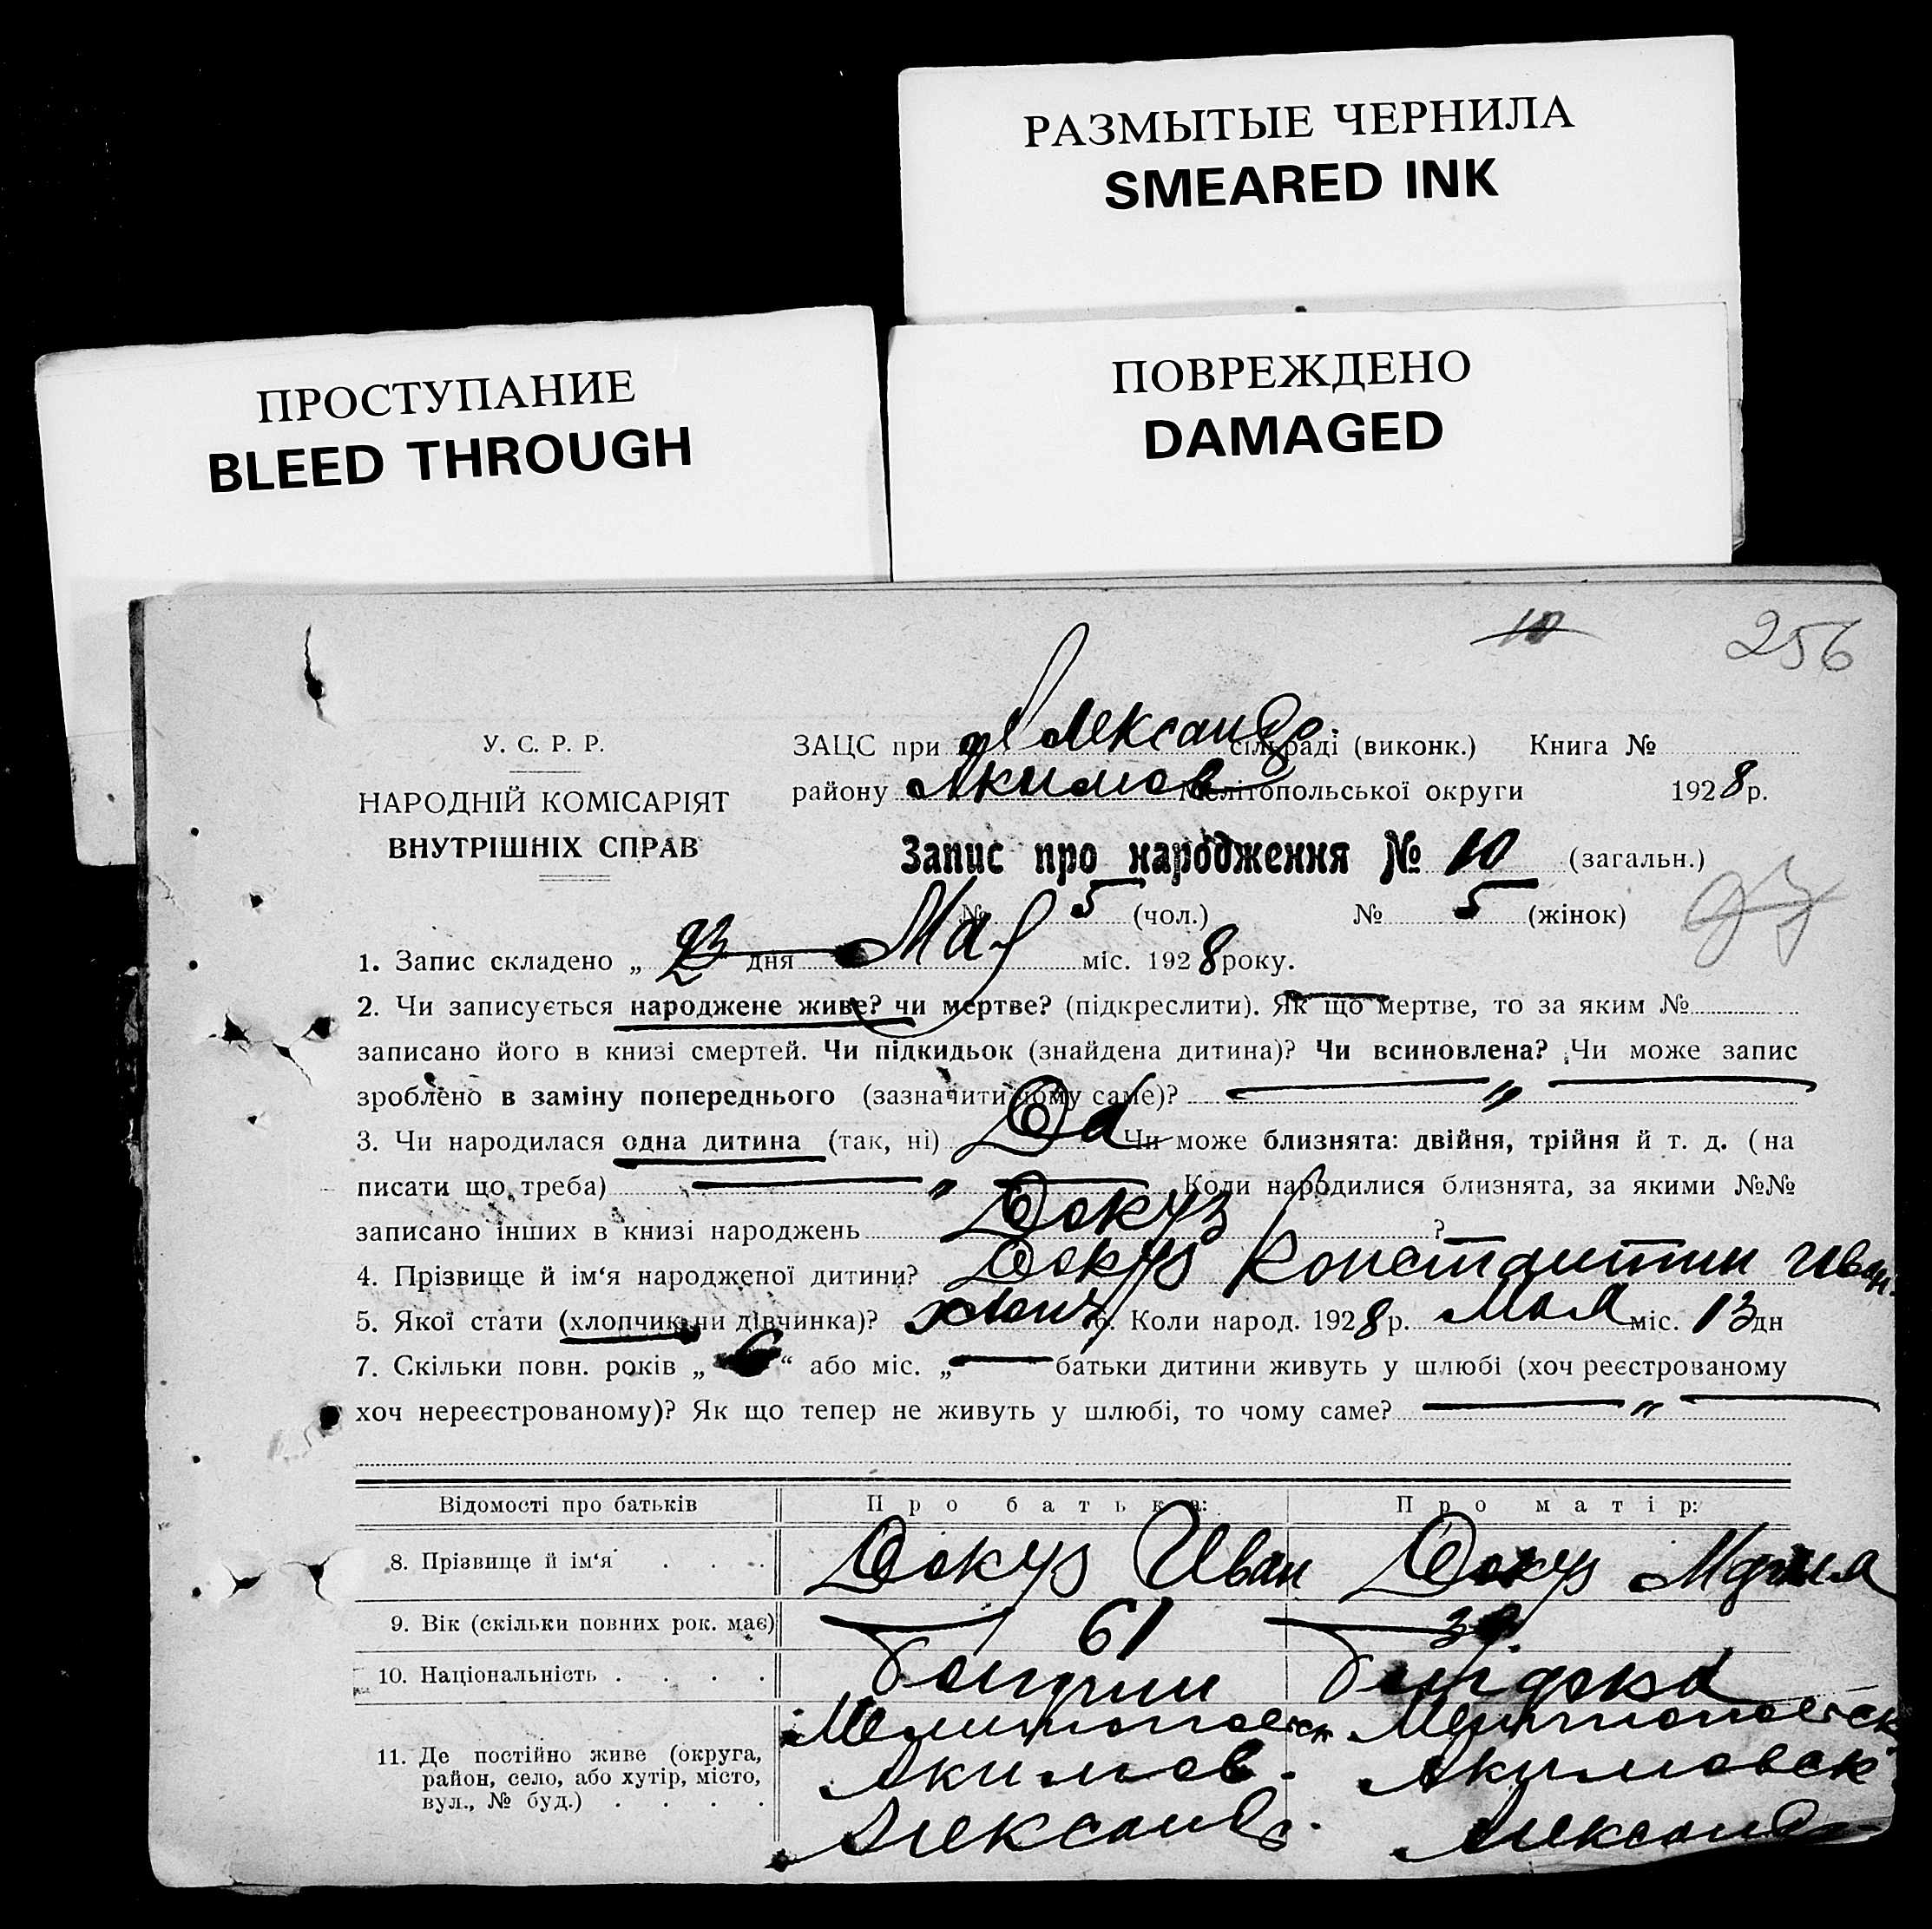 РАЗМЫТЫЕ ЧЕРНИЛА
SMEARED INK
ПРОСТУПАНИЕ
BLEED THROUGH
ПОВРЕЖДЕНО
DAMAGED
10 256
У. С. Р. Р.
НАРОДНІЙ КОМІСАРІЯТ
ВНУТРІШНІХ СПРАВ
ЗАЦС при Александр. сільраді (виконк.) Книга №
району Акимов Мелітопольської округи 1928 р.
Запис про народження № 10 (загальн.)
№ 5 (чол.) № 5 (жінок)
1. Запис складено „ 23 дня Мая міс. 1928 року.
2. Чи записується народжене живе? чи мертве? (підкреслити). Як що мертве, то за яким №
записано його в книзі смертей. Чи підкидьок (знайдена дитина)? Чи всиновлена? Чи може запис
зроблено в заміну попереднього (зазначити чому саме)? — „ —
3. Чи народилася одна дитина (так, ні) Да Чи може близнята: двійня, трійня й т. д. (на
писати що треба) — „ — Коли народилися близнята, за якими №№
записано інших в книзі народжень Докуз ?
4. Прізвище й ім‘я народженої дитини? Докуз Константин Иван.
5. Якої стати (хлопчик чи дівчинка)? хлопч 6. Коли народ. 1928 р. Мая міс. 13 дн
7. Скільки повн. років „ “ або міс. „ — батьки дитини живуть у шлюбі (хоч реєстрованому
хоч нереєстрованому)? Як що тепер не живуть у шлюбі, то чому саме? — „ —
Відомості про батьків Про батька: Про матір:
8. Прізвище й ім‘я . . . . Докуз Иван Докуз Мария
9. Вік (скільки повних рок. має) 61
10. Національність . . . . болгарка
11. Де постійно живе (округа,
район, село, або хутір, місто,
вул., № буд.) . . . .
Мелитопольск Мелитопольск
Акимов. Акимовск
Александр. Александр